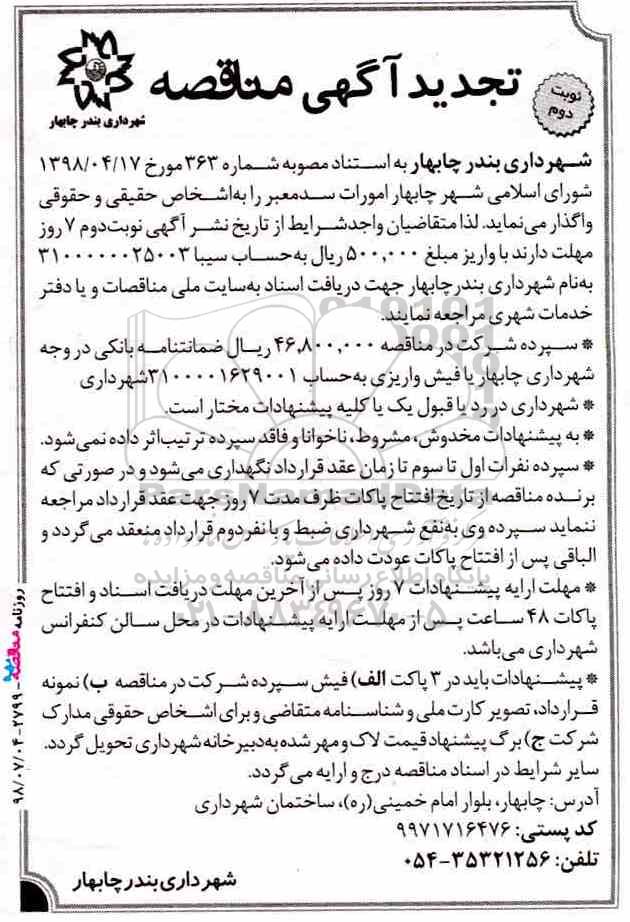 تجدید آگهی مناقصه
نوبت
دوم
شهرداری بندر چابهار
شهرداری بندر چابهار به استناد مصوبه شماره ۳۶۳ مورخ ۱۳۹۸/۰۴/۱۷
شورای اسلامی شهر چابهار امورات سدمعبر را به‌اشخاص حقیقی و حقوقی
واگذار می‌نماید. لذا متقاضیان واجدشرایط از تاریخ نشر آگهی نوبت‌دوم ۷ روز
مهلت دارند با واریز مبلغ ۵۰۰,۰۰۰ ریال به‌حساب سیبا ۳۱۰۰۰۰۰۰۲۵۰۰۳
به‌نام شهرداری بندرچابهار جهت دریافت اسناد به‌سایت ملی مناقصات و یا دفتر
خدمات شهری مراجعه نمایند.
* سپرده شرکت در مناقصه ۴۶,۸۰۰,۰۰۰ ریال ضمانتنامه بانکی در وجه
شهرداری چابهار یا فیش واریزی به‌حساب ۳۱۰۰۰۰۱۶۲۹۰۰۱شهرداری
* شهرداری در رد یا قبول یک یا کلیه پیشنهادات مختار است.
* به پیشنهادات مخدوش، مشروط، ناخوانا و فاقد سپرده ترتیب‌اثر داده نمی‌شود.
* سپرده نفرات اول تا سوم تا زمان عقد قرارداد نگهداری می‌شود و در صورتی که
برنده مناقصه از تاریخ افتتاح پاکات ظرف مدت ۷ روز جهت عقد قرارداد مراجعه
ننماید سپرده وی به‌نفع شهرداری ضبط و با نفردوم قرارداد منعقد می‌گردد و
الباقی پس از افتتاح پاکات عودت داده می‌شود.
* مهلت ارایه پیشنهادات ۷ روز پس از آخرین مهلت دریافت اسناد و افتتاح
پاکات ۴۸ ساعت پس از مهلت ارایه پیشنهادات در محل سالن کنفرانس
شهرداری می‌باشد.
* پیشنهادات باید در ۳ پاکت الف) فیش سپرده شرکت در مناقصه ب) نمونه
قرارداد، تصویر کارت ملی و شناسنامه متقاضی و برای اشخاص حقوقی مدارک
شرکت ج) برگ پیشنهاد قیمت لاک و مهر شده به‌دبیرخانه شهرداری تحویل گردد.
سایر شرایط در اسناد مناقصه درج و ارایه می‌گردد.
آدرس: چابهار، بلوار امام خمینی(ره)، ساختمان شهرداری
کد پستی: ۹۹۷۱۷۱۶۴۷۶
تلفن: ۳۵۳۲۱۲۵۶-۰۵۴
شهرداری بندر چابهار
روزنامه مناقصه - ۲۷۹۹ - ۹۸/۰۷/۰۴
پایگاه اطلاع رسانی مناقصه و مزایده
۰۲۱-۸۸۳۴۹۶۷۰-۵